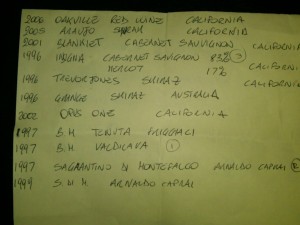 2006 OAKVILLE RED WINE CALIFORNIA
2005 ARAUJO SYRAH CALIFORNIA
2001 BLANKIET CABERNET SAUVIGNON CALIFORNIA
1996 CABERNET SAUVIGNON 83%
MERLOT 17% CALIFORNIA
1996 TREVOR JONES SHIRAZ
1996 GRANGE SHIRAZ AUSTRALIA
2002 OPUS ONE CALIFORNIA
1997 B.M. TENUTA
1997 B.M. VALDICAVA 1
1997 SAGRANTINO DI MONTEFALCO ARNALDO CAPRAI
1999 S.M.M. ARNALDO CAPRAI